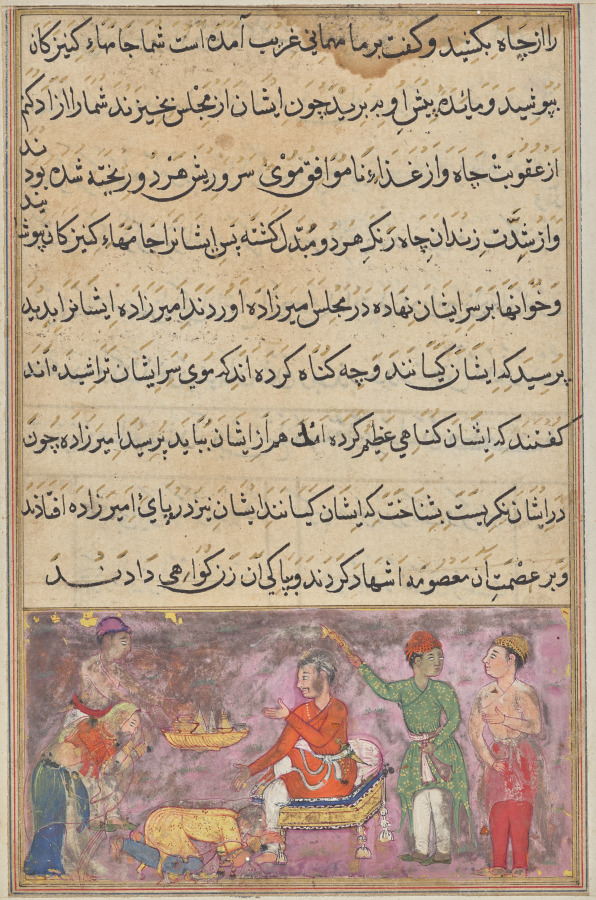 را از چاه بکشید و کفت بر ما مهمانی غریب آمده است شما جامهاء کنیزکان
بپوشید و مائده پیش او به برید چون ایشان از مجلس بخیزند شما را ازاد کنم
از عقوبت چاه و از غذاء نا موافق موی سر و ریش هر دو ریخته شده بود
و از شدّت زندان چاه رنک هر دو مبدّل کشته پس ایشانرا جامهاء کنیزکان پوشانیدند
و خوانها بر سر ایشان نهاده در مجلس امیرزاده اوردند امیرزاده ایشانرا بدید
پرسید که ایشان کیانند و چه کناه کرده اند که موی سر ایشان تراشیده اند
کفتند که ایشان کناهی عظیم کرده اند هم از ایشان بباید پرسید امیرزاده چون
در ایشان نکریست بشناخت که ایشان کیانند ایشان نیز در پای امیرزاده افتادند
و بر عصمت آن معصومه اشهاد کردند و بپاکی آن زن کواهی دادند